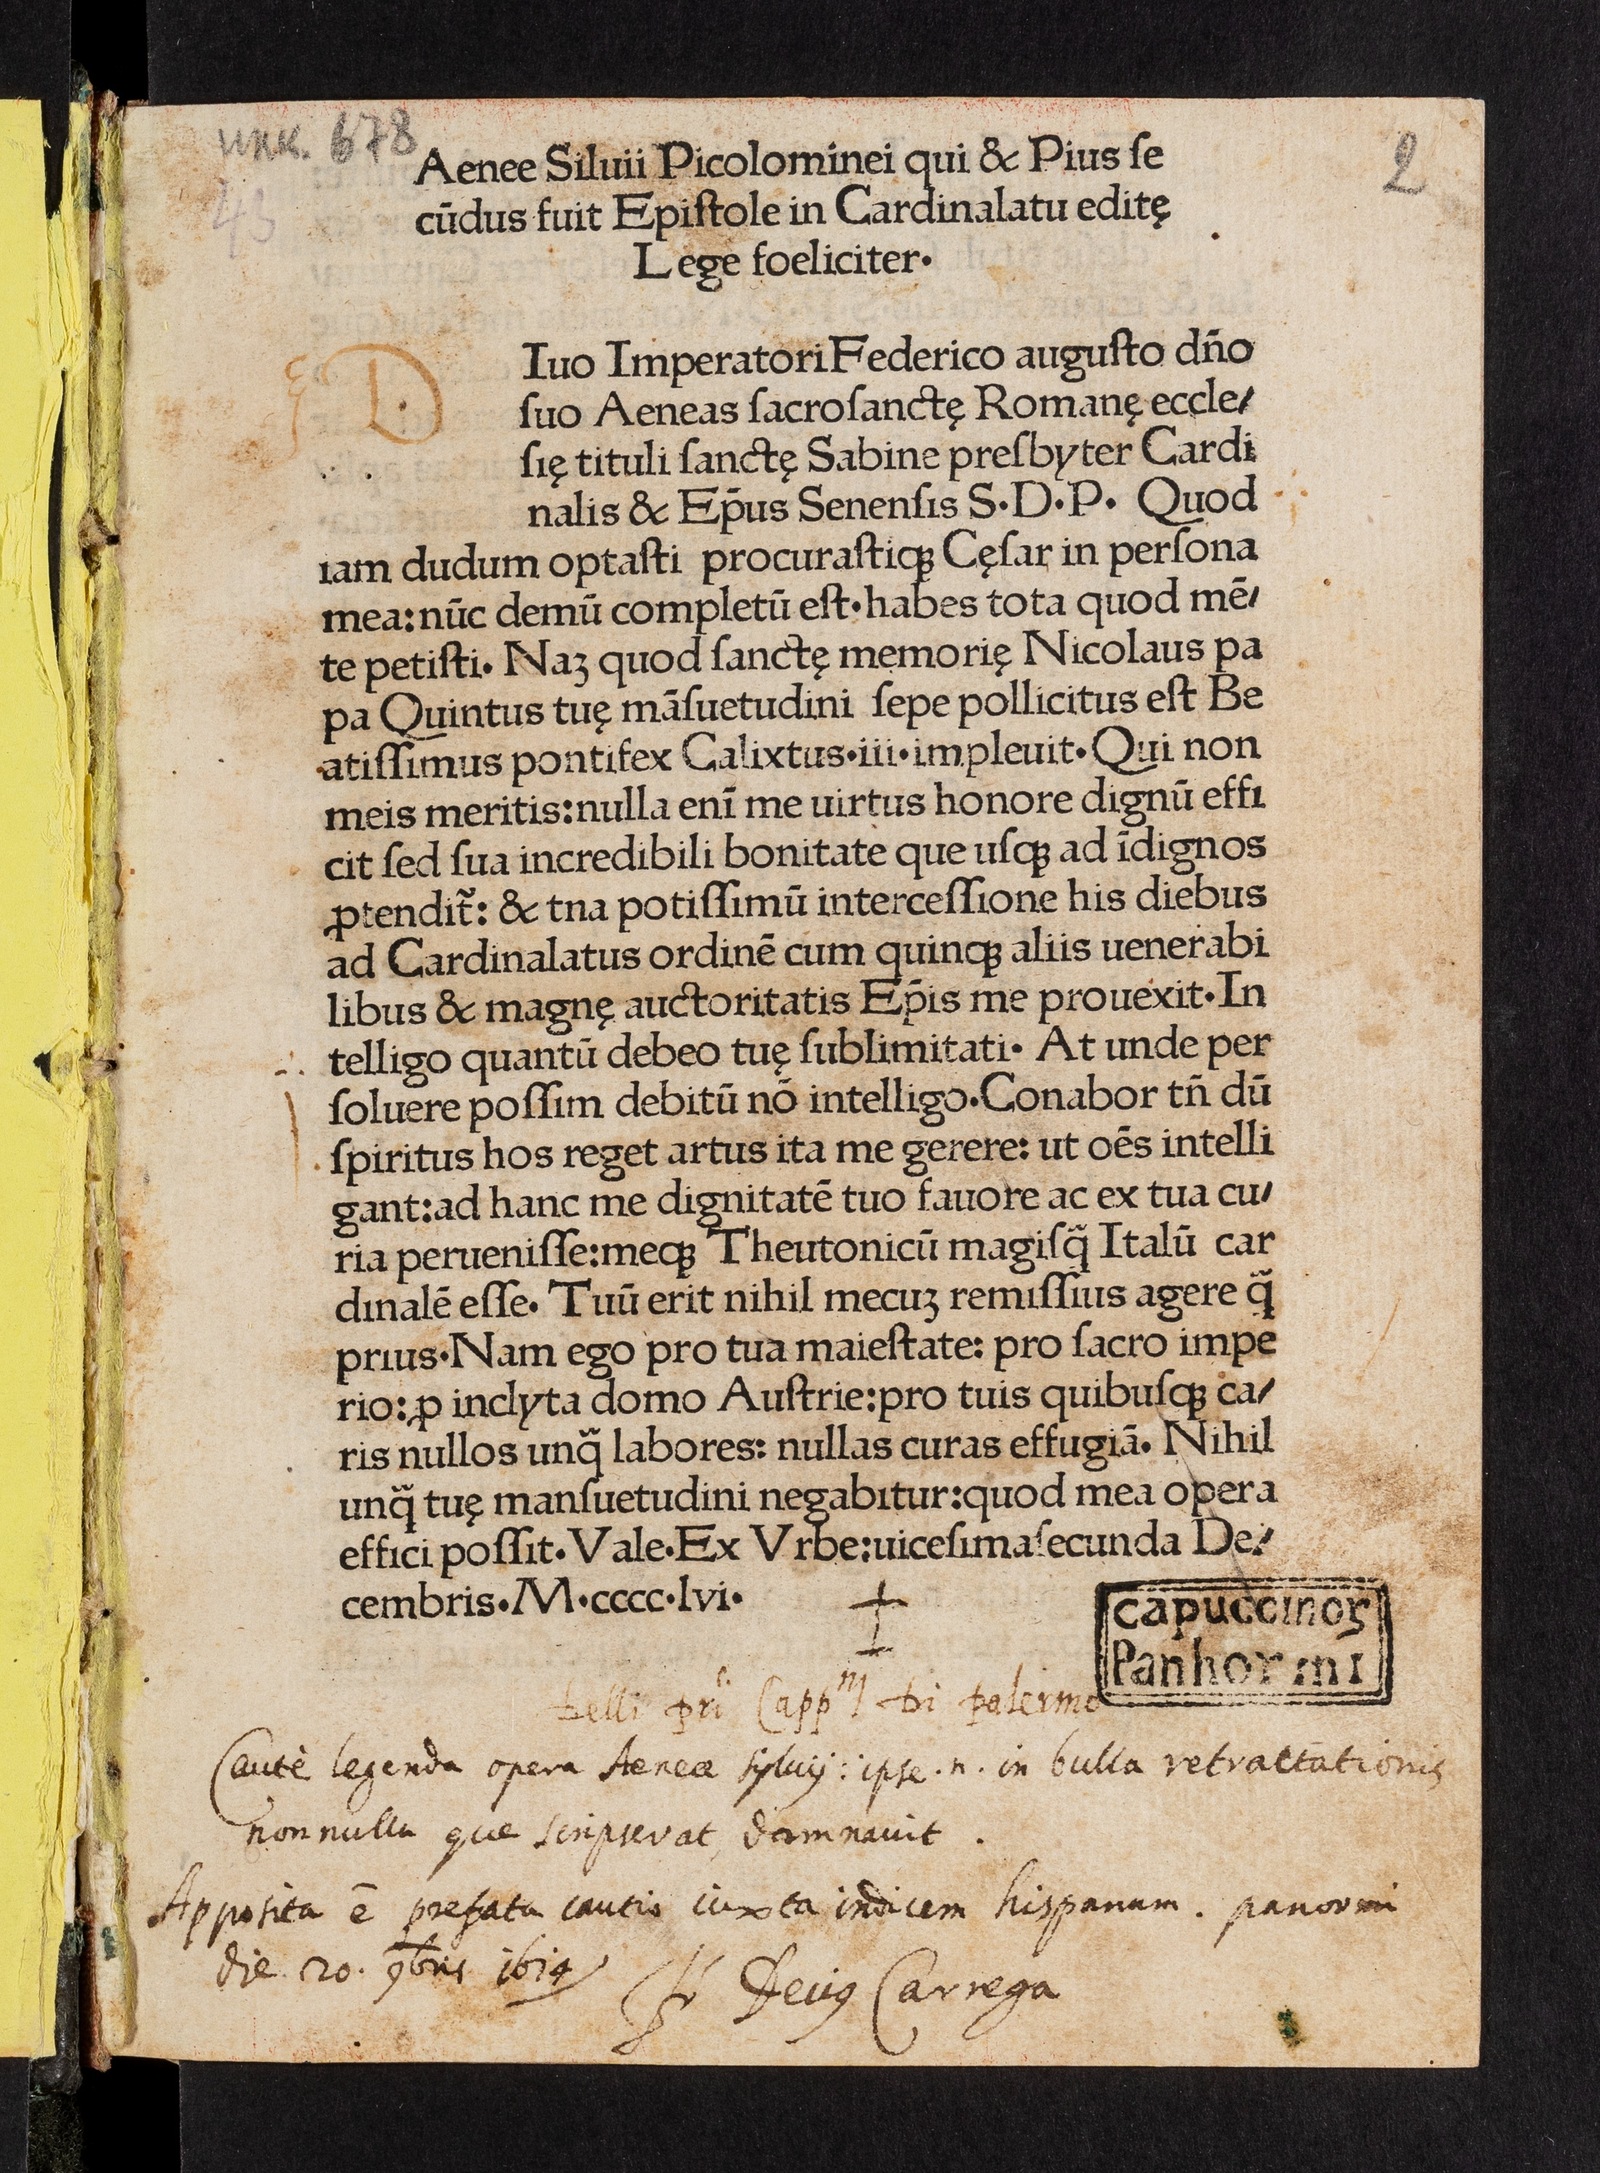 инк. 678
2
43
Aenee Siluii Picolominei qui & Pius ſe
cūdus fuit Epiſtole in Cardinalatu editę
Lege foeliciter.
D
Iuo Imperatori Federico auguſto dño
ſuo Aeneas ſacroſanctę Romanę eccle/
ſię tituli ſanctę Sabine preſbyter Cardi
nalis & Ep̄us Senenſis S.D.P. Quod
iam dudum optaſti procuraſtiqꝫ Cęſar in perſona
mea:nūc demū completū eſt.habes tota quod mē/
te petiſti. Naꝫ quod ſanctę memorię Nicolaus pa
pa Quintus tuę māſuetudini ſepe pollicitus eſt Be
atiſſimus pontifex Calixtus.iii.impleuit.Qui non
meis meritis:nulla enī me uirtus honore dignū effi
cit ſed ſua incredibili bonitate que uſqꝫ ad īdignos
ꝓtendit̃: & tna potiſſimū interceſſione his diebus
ad Cardinalatus ordinē cum quinqꝫ aliis uenerabi
libus & magnę auctoritatis Ep̄is me prouexit.In
telligo quantū debeo tuę ſublimitati. At unde per
ſoluere poſſim debitū nō intelligo.Conabor tñ dū
ſpiritus hos reget artus ita me gerere: ut oēs intelli
gant:ad hanc me dignitatē tuo fauore ac ex tua cu/
ria perueniſſe:meqꝫ Theutonicū magiſq̃ Italū car
dinalē eſſe. Tuū erit nihil mecuꝫ remiſſius agere q̃
prius.Nam ego pro tua maieſtate: pro ſacro impe
rio:ꝓ inclyta domo Auſtrie:pro tuis quibuſqꝫ ca/
ris nullos unq̃ labores: nullas curas effugiā. Nihil
unq̃ tuę manſuetudini negabitur:quod mea opera
effici poſſit.Vale.Ex Vrbe:uiceſimaſecunda De/
cembris.M.cccc.lvi.
capuccinoꝝ
Panhormi
delli pri Cappni di palermo
Cautè legenda opera Aeneæ sylvij: ipse .n. in bulla retractationis
nonnulla que scripserat, damnauit.
Apposita ē prefata cautio iuxta indicem hispanum. panormi
die 20. 9bris 1619
Carrega